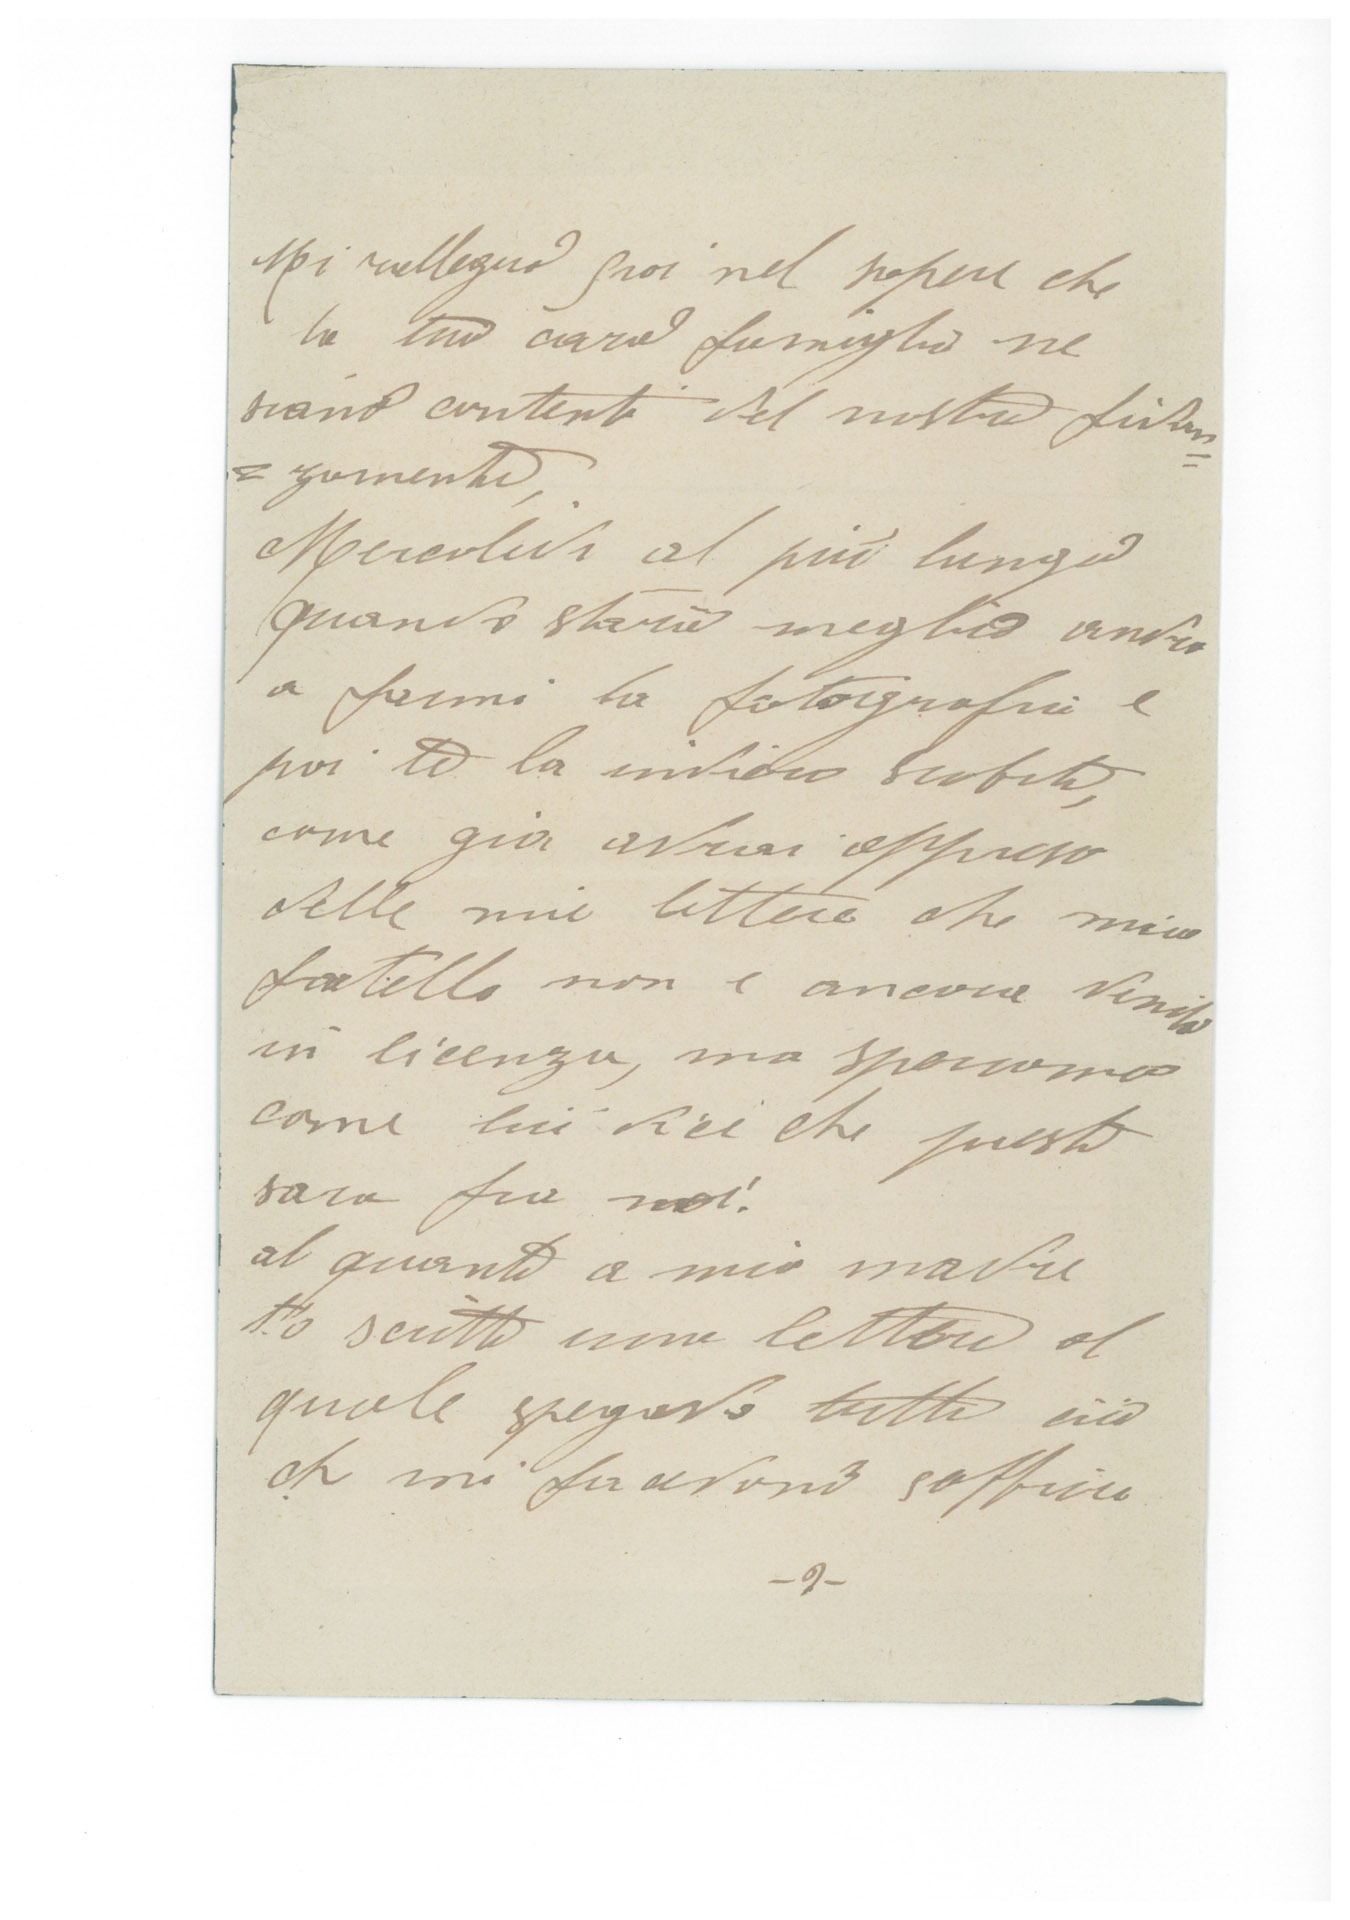 Mi rallegro poi nel sapere che
la tua cara famiglia ne
siano contenti del nostro fidan=
=zamento,
Mercoledi al più lungo
quando starò meglio andro
a farmi la fotografia e
poi te la inviero subito,
come gia avrai appreso
delle mie lettere che mio
fratello non e ancora venuto
in licenza, ma speriamo
come lui dici che presto
sara fra noi!
al quanto a mia madre
t'o scritto una lettera al
quale spegavo tutto ciò
ch mi facevono soffrire
-2-